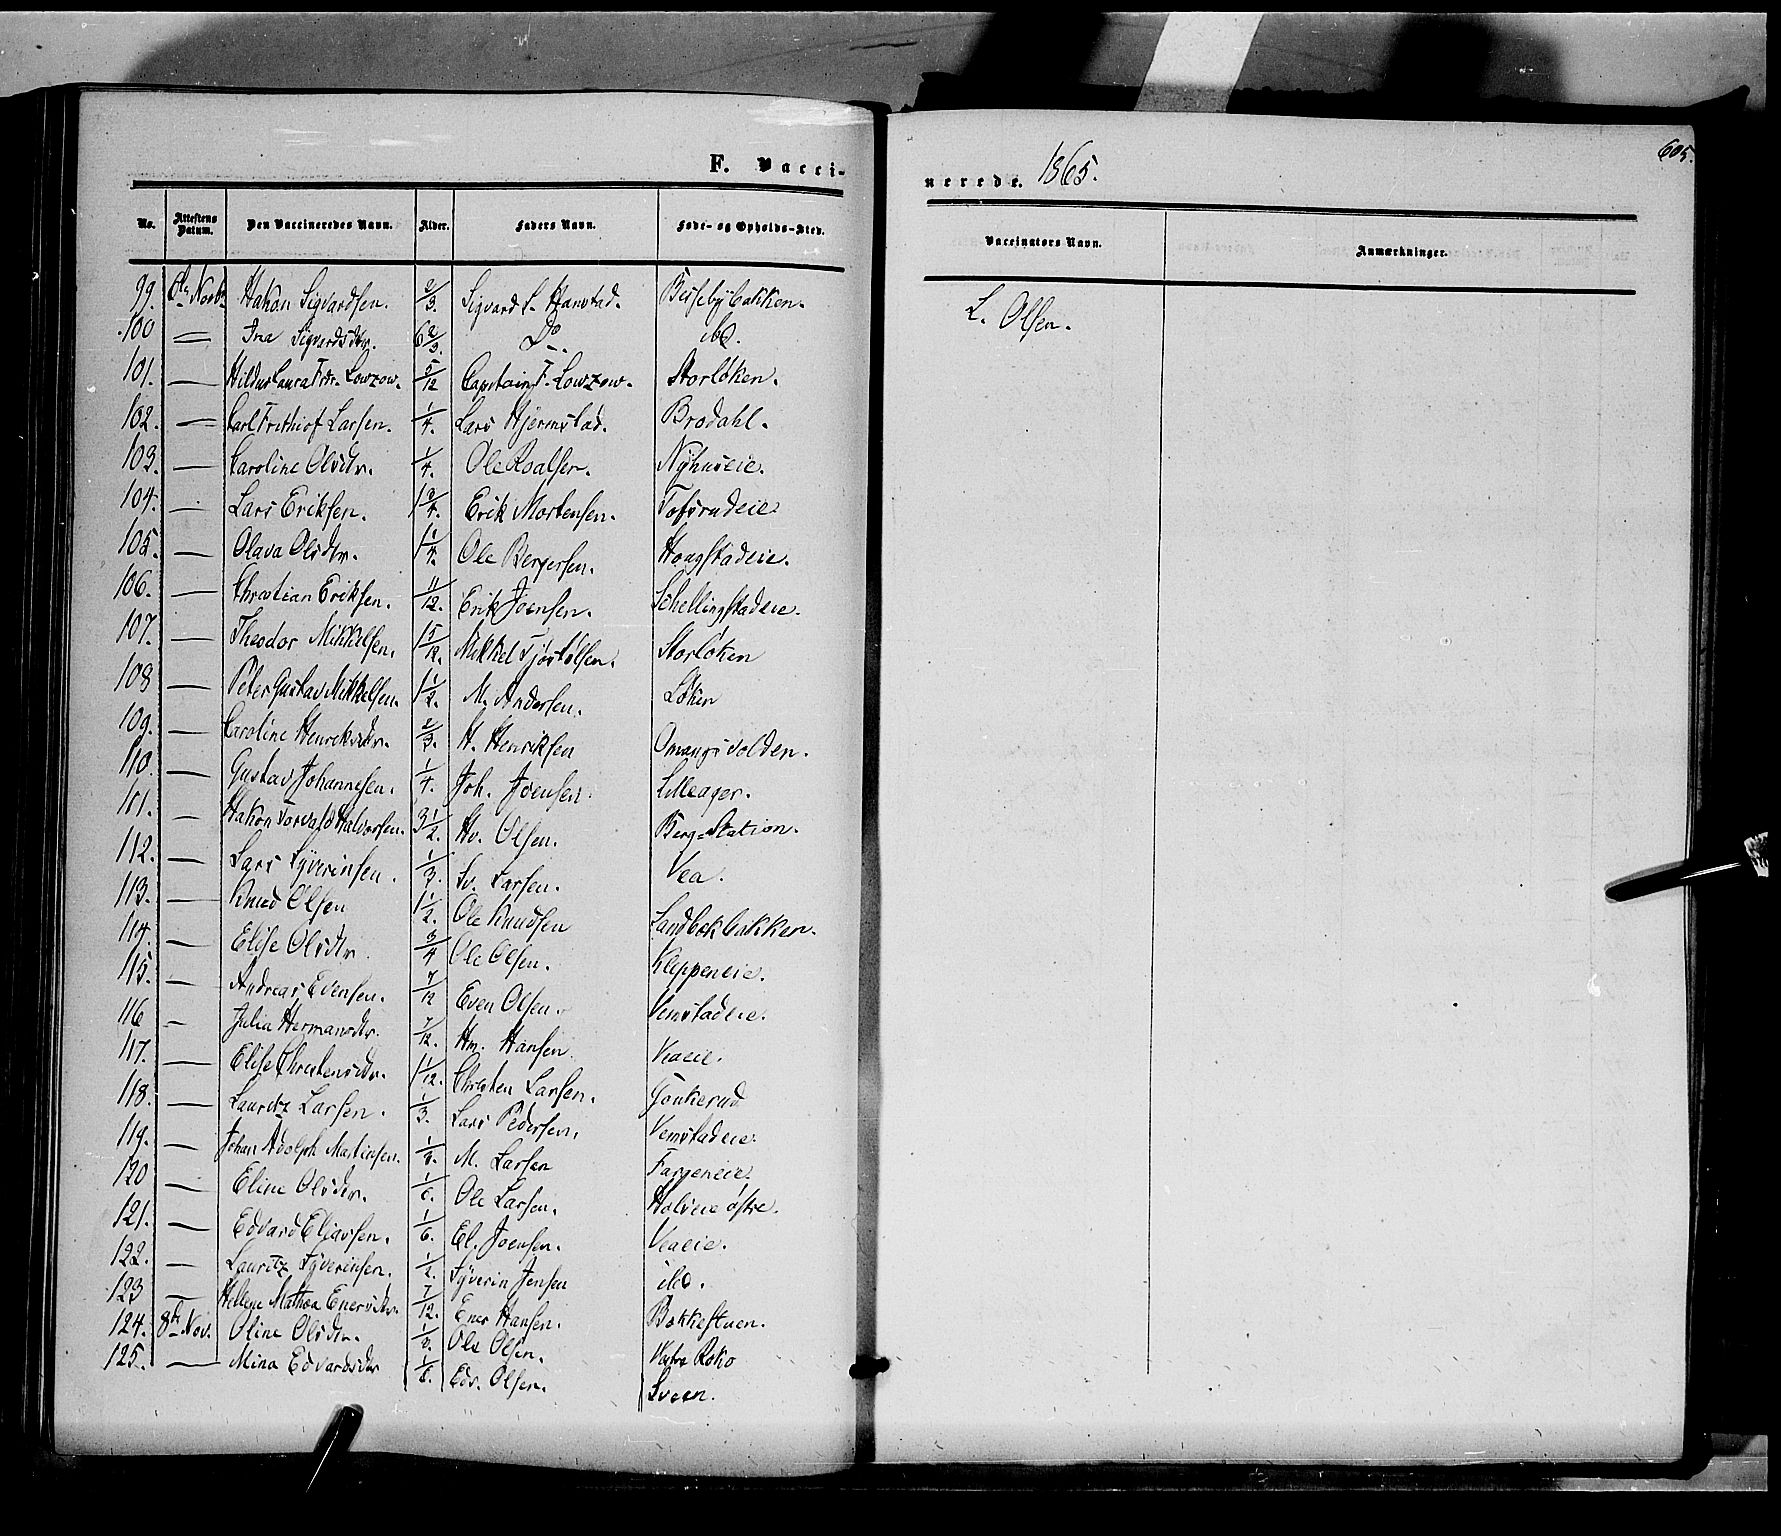 F. Vacci-
nerede. 1865.
605.
No. Attestens Datum. Den Vaccineredes Navn. Alder. Faders Navn. Føde- og Opholds-Sted. Vaccinators Navn. Anmærkninger.
99. 8de Novb. Hakon Sigvardsen. 2/3 Sigvard S. Hanstad. Bussebybakken. L. Olsen.
100 — Ina Sigvardsdtr. 6 2/3. Do. ibd.
101. — Laura Fdr. Lowzow. 5/12 Capitain F. Lowzow. Storløken.
102. — Carl Frithiof Larsen. 1/4. Lars Hjermstad. Brodahl.
103. — Caroline Olsdtr. 1/4. Ole Roalsen. Nyhuseie.
104. — Lars Eriksen. 1 3/4. Erik Mortensen. Tofsrudeie.
105. — Olava Olsdtr. 1 1/4. Ole Bergersen. Haugstadeie.
106. — Christian Eriksen. 11/12. Erik Joensen. Schellingstadeie.
107. — Theodor Mikkelsen. 1 5/12. Mikkel Tjøstølsen. Storløken
108 — Peter Gustav Mikkelsen. 1 1/2. M. Andersen. Løken
109. — Caroline Henriksdtr. 2/3. H. Henriksen Omangsvolden.
110. — Gustav Johannesen. 1/4. Joh. Joensen. Lilleager.
111. — Hakon Torvald Halvorsen. 3 1/2. Hv. Olsen. Berg-Station.
112. — Lars Syverinsen. 1/3. Sv. Larsen. Vea.
113. — Knud Olsen 1 1/2. Ole Knudsen Sandbækbakken.
114. — Elise Olsdtr. 3/4 Ole Olsen. Kleppeneie.
115. — Andreas Evensen. 7/12 Even Olsen. Vemstadeie.
116 — Julia Hermansdtr. 7/12. Hm. Hansen. Veaeie.
117. — Elise Christensdtr. 1 1/12. Christen Larsen. Gonkerud
118. — Lauritz Larsen. 1/3. Lars Pedersen. Vemstadeie.
119. — Johan Adolph Martinsen. M. Larsen Fargeneie.
120 — Eline Olsdtr. 1/6. Ole Larsen. østre.
121. — Edvard Eliassen. 1/6. El. Joensen. Veaeie.
122. — Lauritz Syverinsen. 1/2. Syverin Jensen ibd.
123 — Hellene Mathea Enersdtr. 7/12. Ener Hansen. Bakkestuen.
124. 8de Nov. Oline Olsdtr. Ole Olsen. Vestre Roko
125. — Mina Edvardsdtr Edv. Olsen. Sveen.